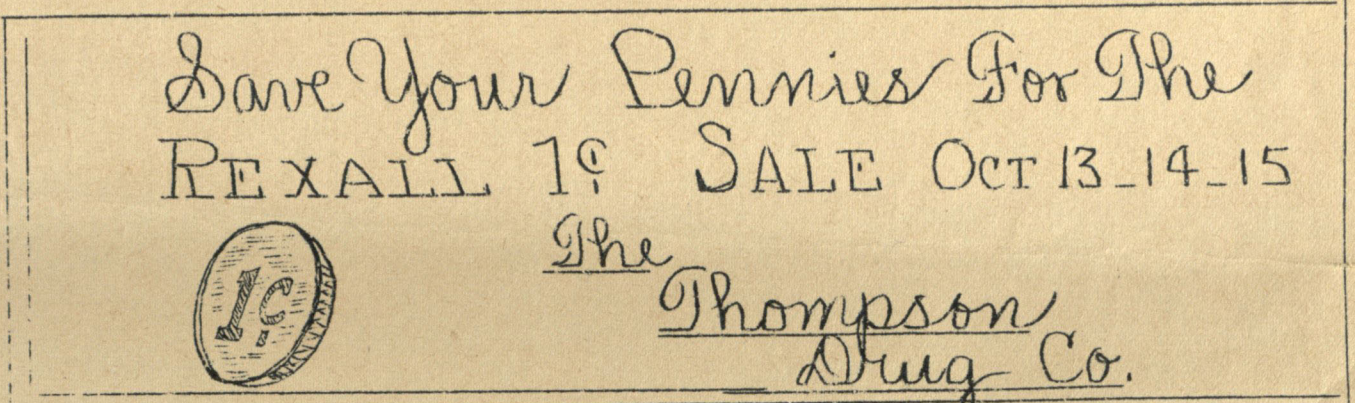 Save Your Pennies For The
REXALL 1¢ SALE OCT 13-14-15
The
Thompson
Drug Co.
1¢